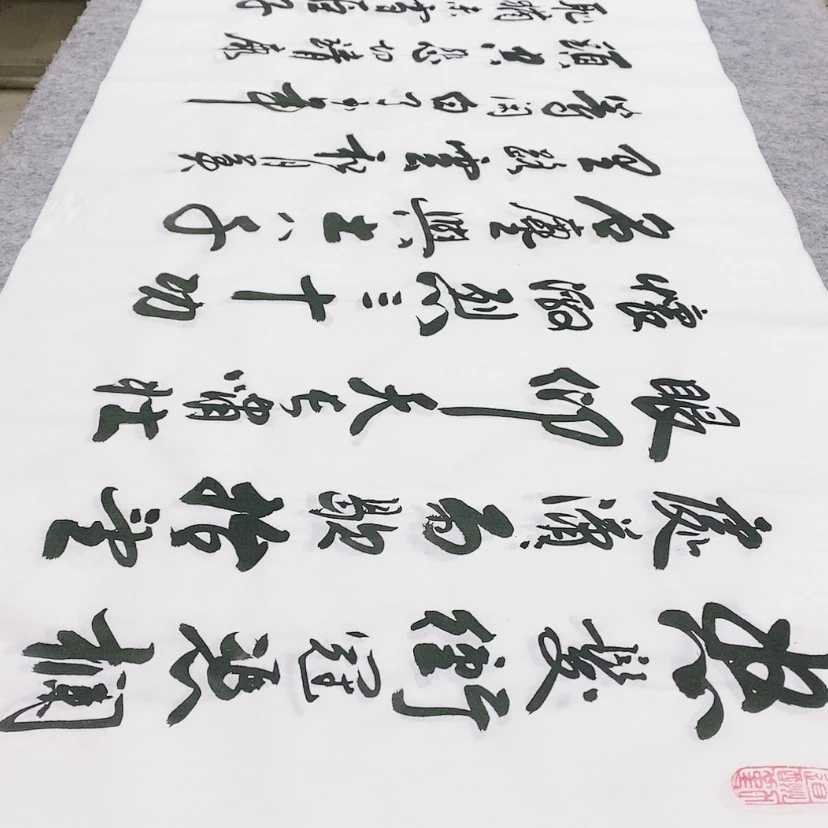 怒髮衝冠憑欄
處瀟雨歇抬望
眼仰天長嘯壯
懷激烈三十功
名塵與土八千
里路雲和月莫
等閒白了少年
頭空悲切靖康
恥猶未雪臣子